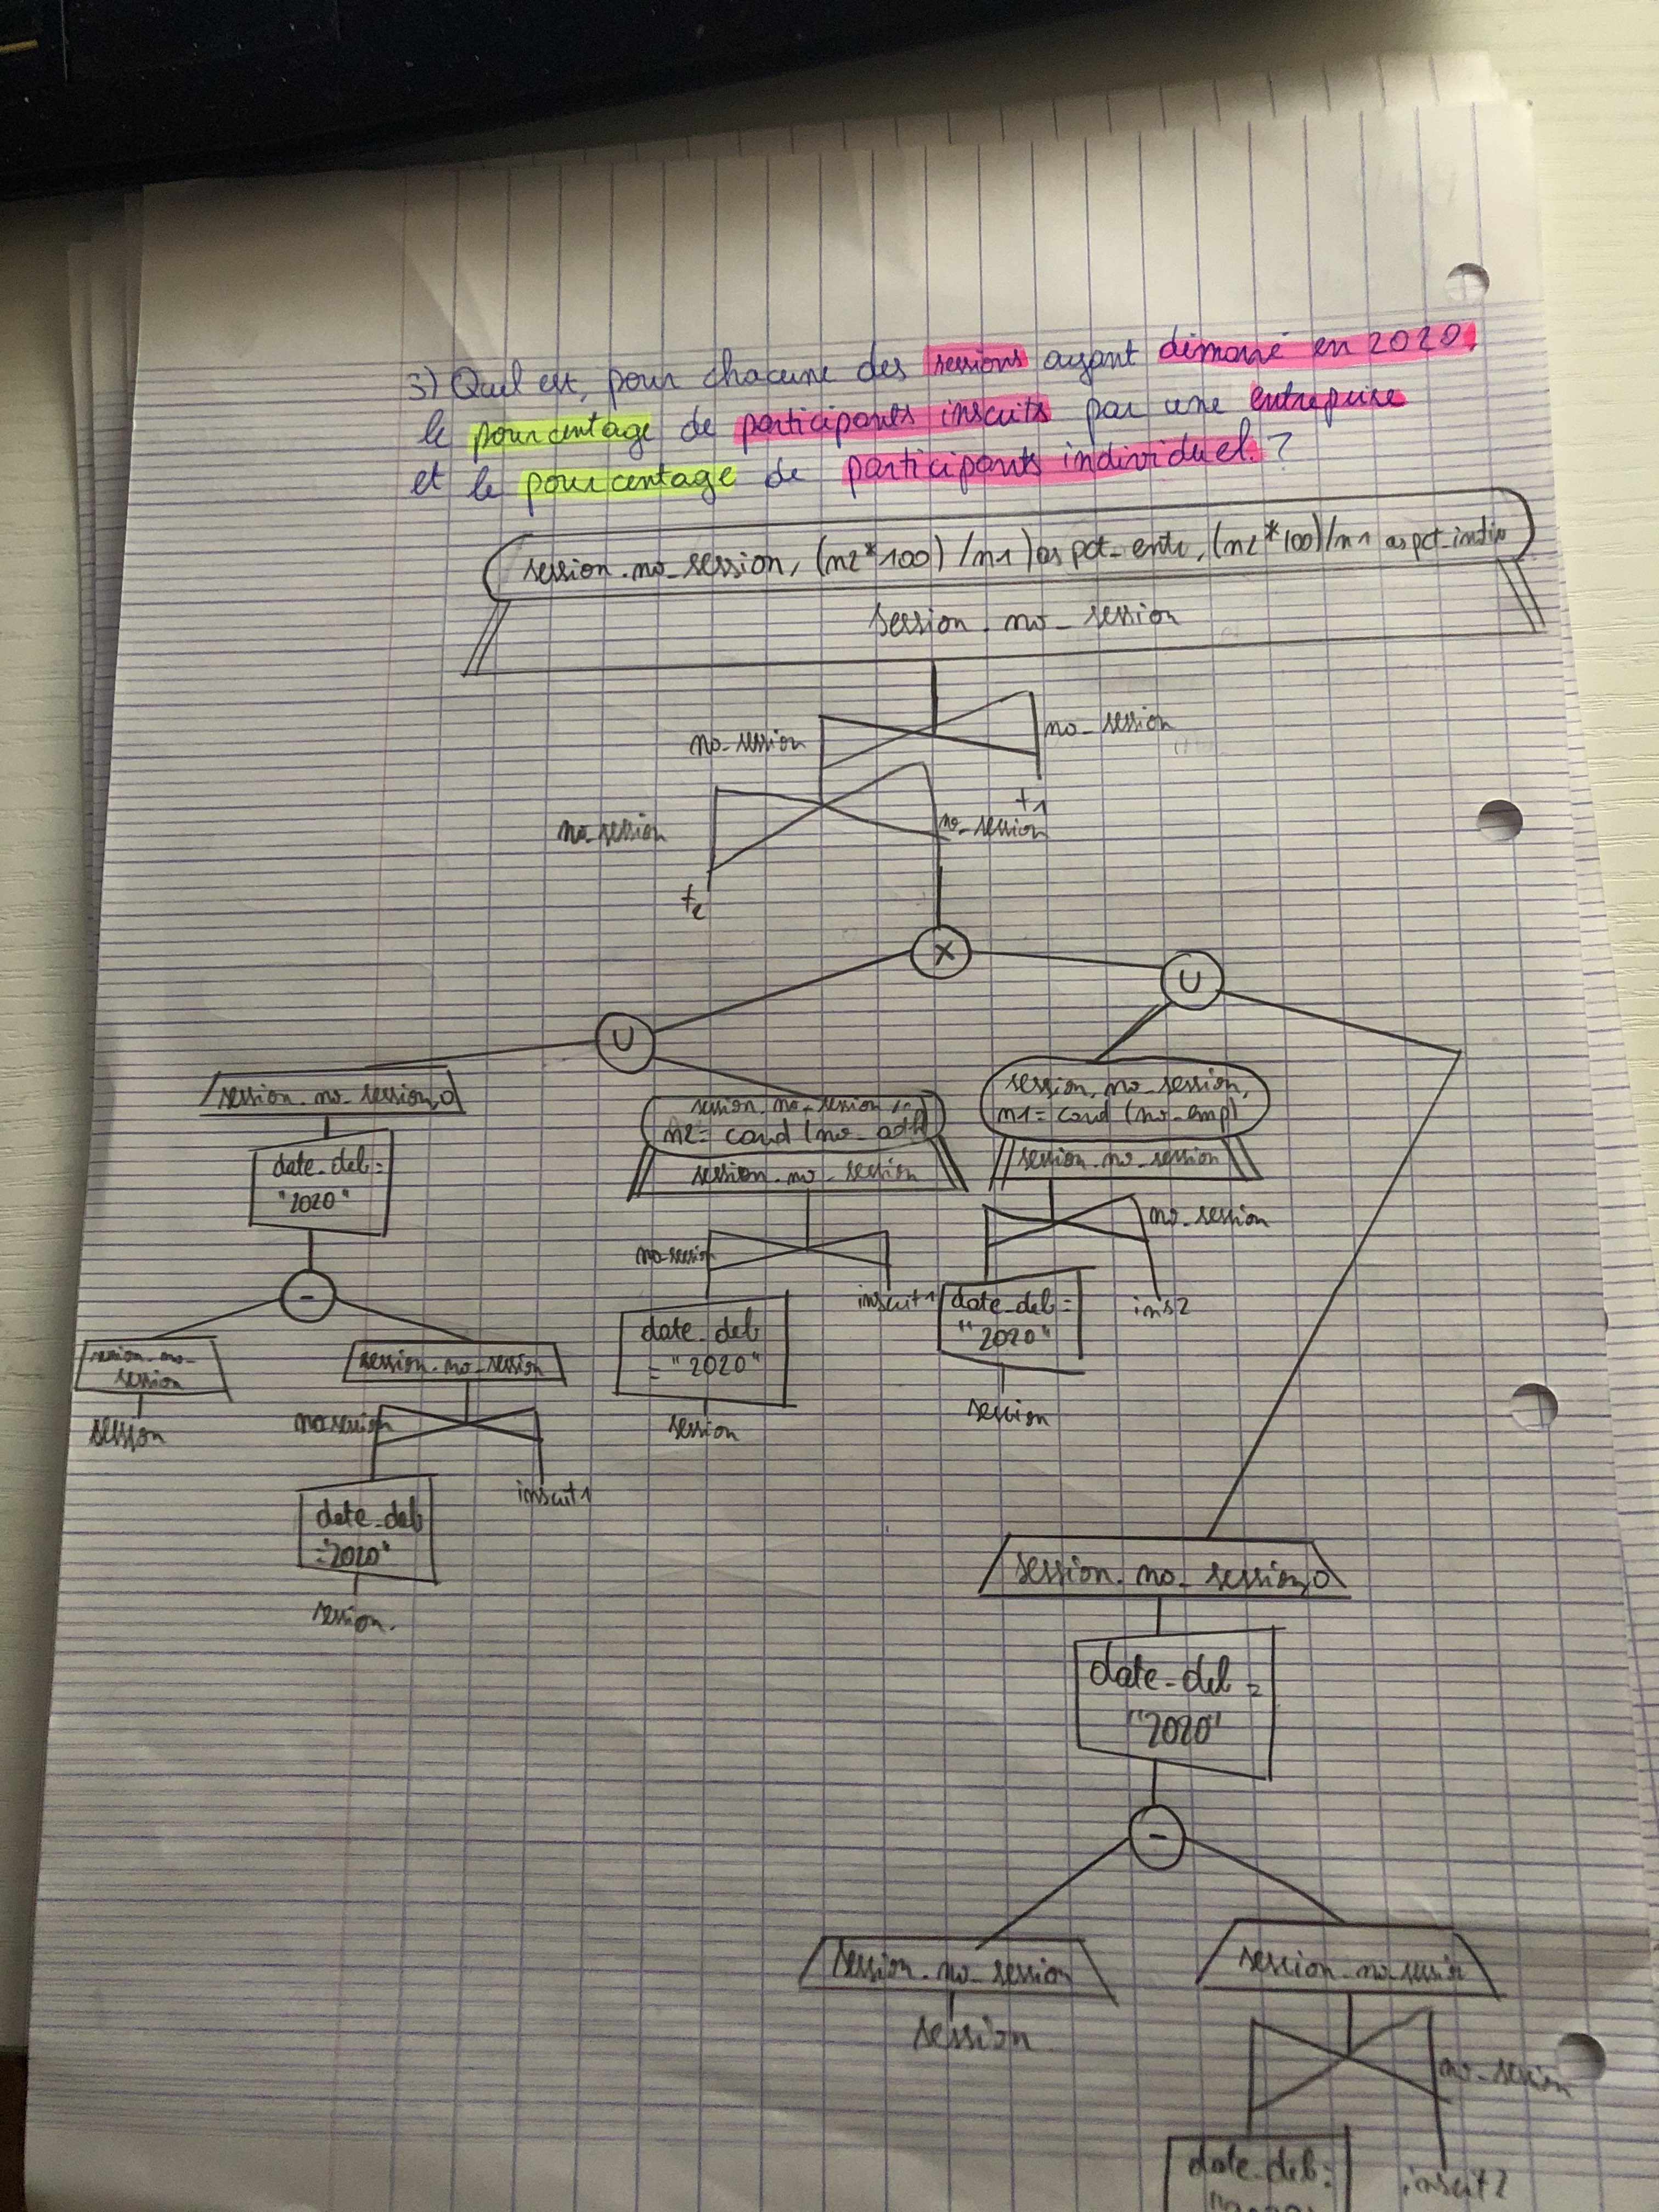 3) Quel est, pour chacune des sessions ayant démarré en 2020,
le pourcentage de participants inscrits par une entreprise
et le pourcentage de participants individuel. ?
session.no_session, (n2*100)/n1) as pct_entr, (n2*100)/n1 as pct_indiv
session.no_session
no_session
no_session
t1
no_session
no_session
t2
X
U
U
session.no_session,0
session.no_session,
n2= card (no_adh)
session.no_session,
n1= card (no_emp)
date_deb=
"2020"
session.no_session
session.no_session
no_session
no_session
-
inscrit1
ins2
date_deb
= "2020"
date_deb=
"2020"
session.no_
session
session.no_session
session
no_session
session
session
inscrit1
date_deb
="2020"
session.
session.no_session,0
date_deb =
"2020"
-
session.no_session
session.no_session
session
no_session
date_deb=
inscrit2